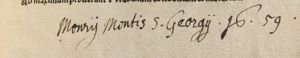 Monrij Montis S. Georgij . 16 . 59 .